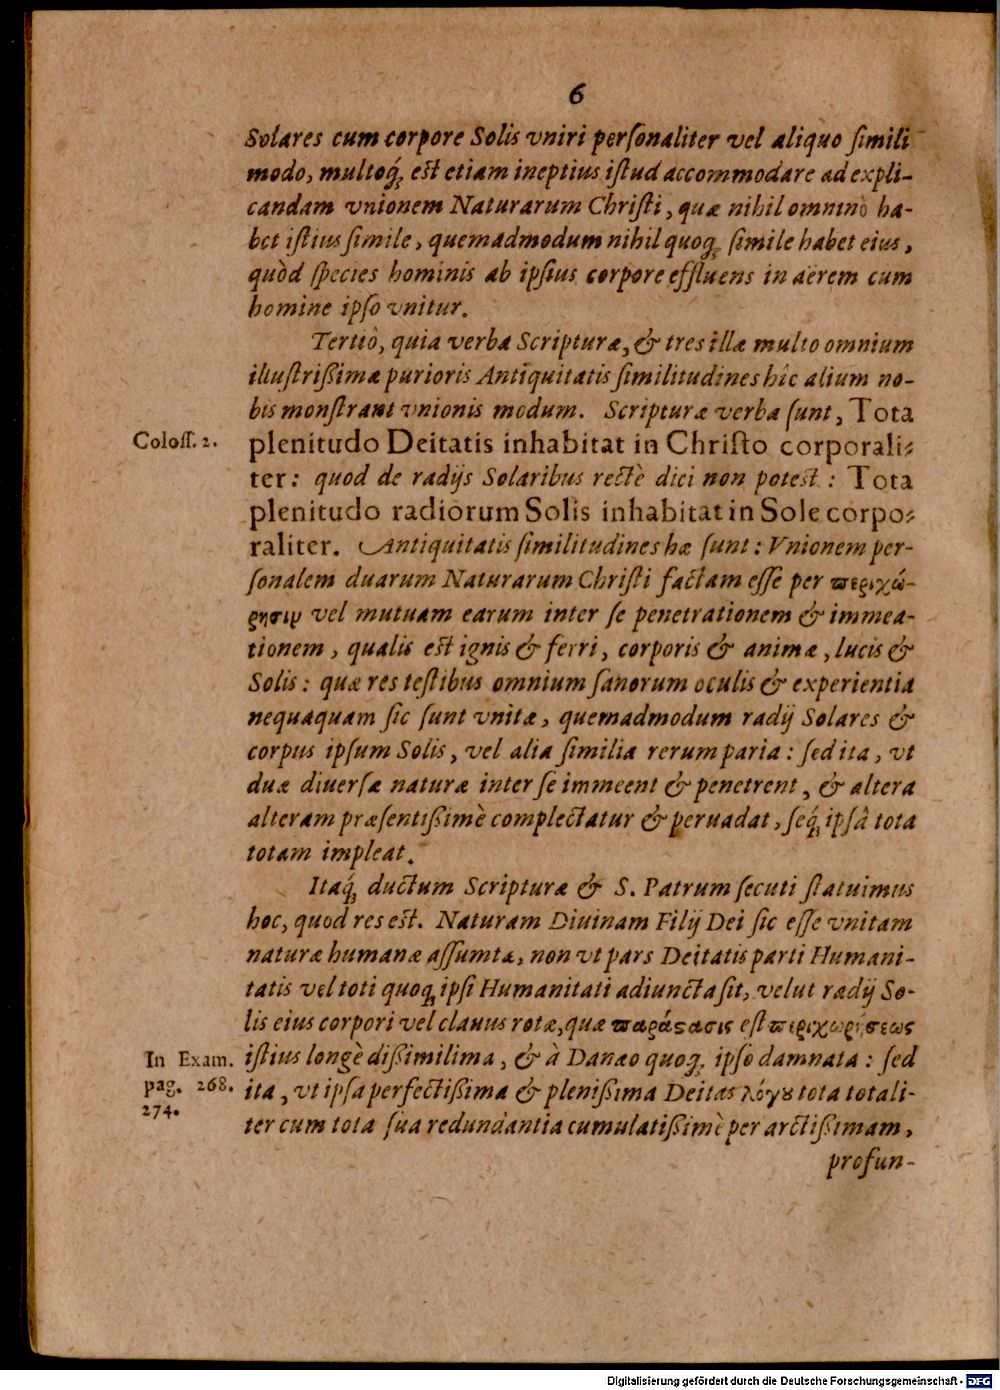 6
Solares cum corpore Solis vniri perſonaliter vel aliquo ſimili
modo, multoq́; eſt etiam ineptius iſtud accommodare ad expli-
candam vnionem Naturarum Chriſti, quæ nihil omninò ha-
bet iſtius ſimile, quemadmodum nihil quoq; ſimile habet eius,
quòd ſpecies hominis ab ipſius corpore effluens in aërem cum
homine ipſo vnitur.
Tertiò, quia verba Scripturæ, & tres illæ multo omnium
illuſtrißimæ purioris Antiquitatis ſimilitudines hîc alium no-
bis monſtrant vnionis modum. Scripturæ verba ſunt, Tota
Coloſſ. 2. plenitudo Deitatis inhabitat in Chriſto corporali-
ter: quod de radijs Solaribus rectè dici non poteſt: Tota
plenitudo radiorum Solis inhabitat in Sole corpo-
raliter. Antiquitatis ſimilitudines hæ ſunt: Vnionem per-
ſonalem duarum Naturarum Chriſti factam eſſe per περιχώ-
ρησιν vel mutuam earum inter ſe penetrationem & immea-
tionem, qualis eſt ignis & ferri, corporis & animæ, lucis &
Solis: quæ res teſtibus omnium ſanorum oculis & experientia
nequaquam ſic ſunt vnitæ, quemadmodum radij Solares &
corpus ipſum Solis, vel alia ſimilia rerum paria: ſed ita, vt
duæ diuerſæ naturæ inter ſe immeent & penetrent, & altera
alteram præſentißimè complectatur & peruadat, ſeq́; ipſâ tota
totam impleat.
Itaq́; ductum Scripturæ & S. Patrum ſecuti ſtatuimus
hoc, quod res eſt. Naturam Diuinam Filij Dei ſic eſſe vnitam
naturæ humanæ aſſumtæ, non vt pars Deitatis parti Humani-
tatis vel toti quoq; ipſi Humanitati adiuncta ſit, velut radij So-
lis eius corpori vel clauus rotæ, quæ παράϛασις eſt περιχωρήσεως
In Exam. iſtius longè dißimilima, & à Danæo quoq; ipſo damnata: ſed
pag. 268. ita, vt ipſa perfectißima & plenißima Deitas λόγȣ tota totali-
274. ter cum tota ſua redundantia cumulatißimè per arctißimam,
profun-
Digitalisierung gefördert durch die Deutsche Forschungsgemeinschaft - DFG